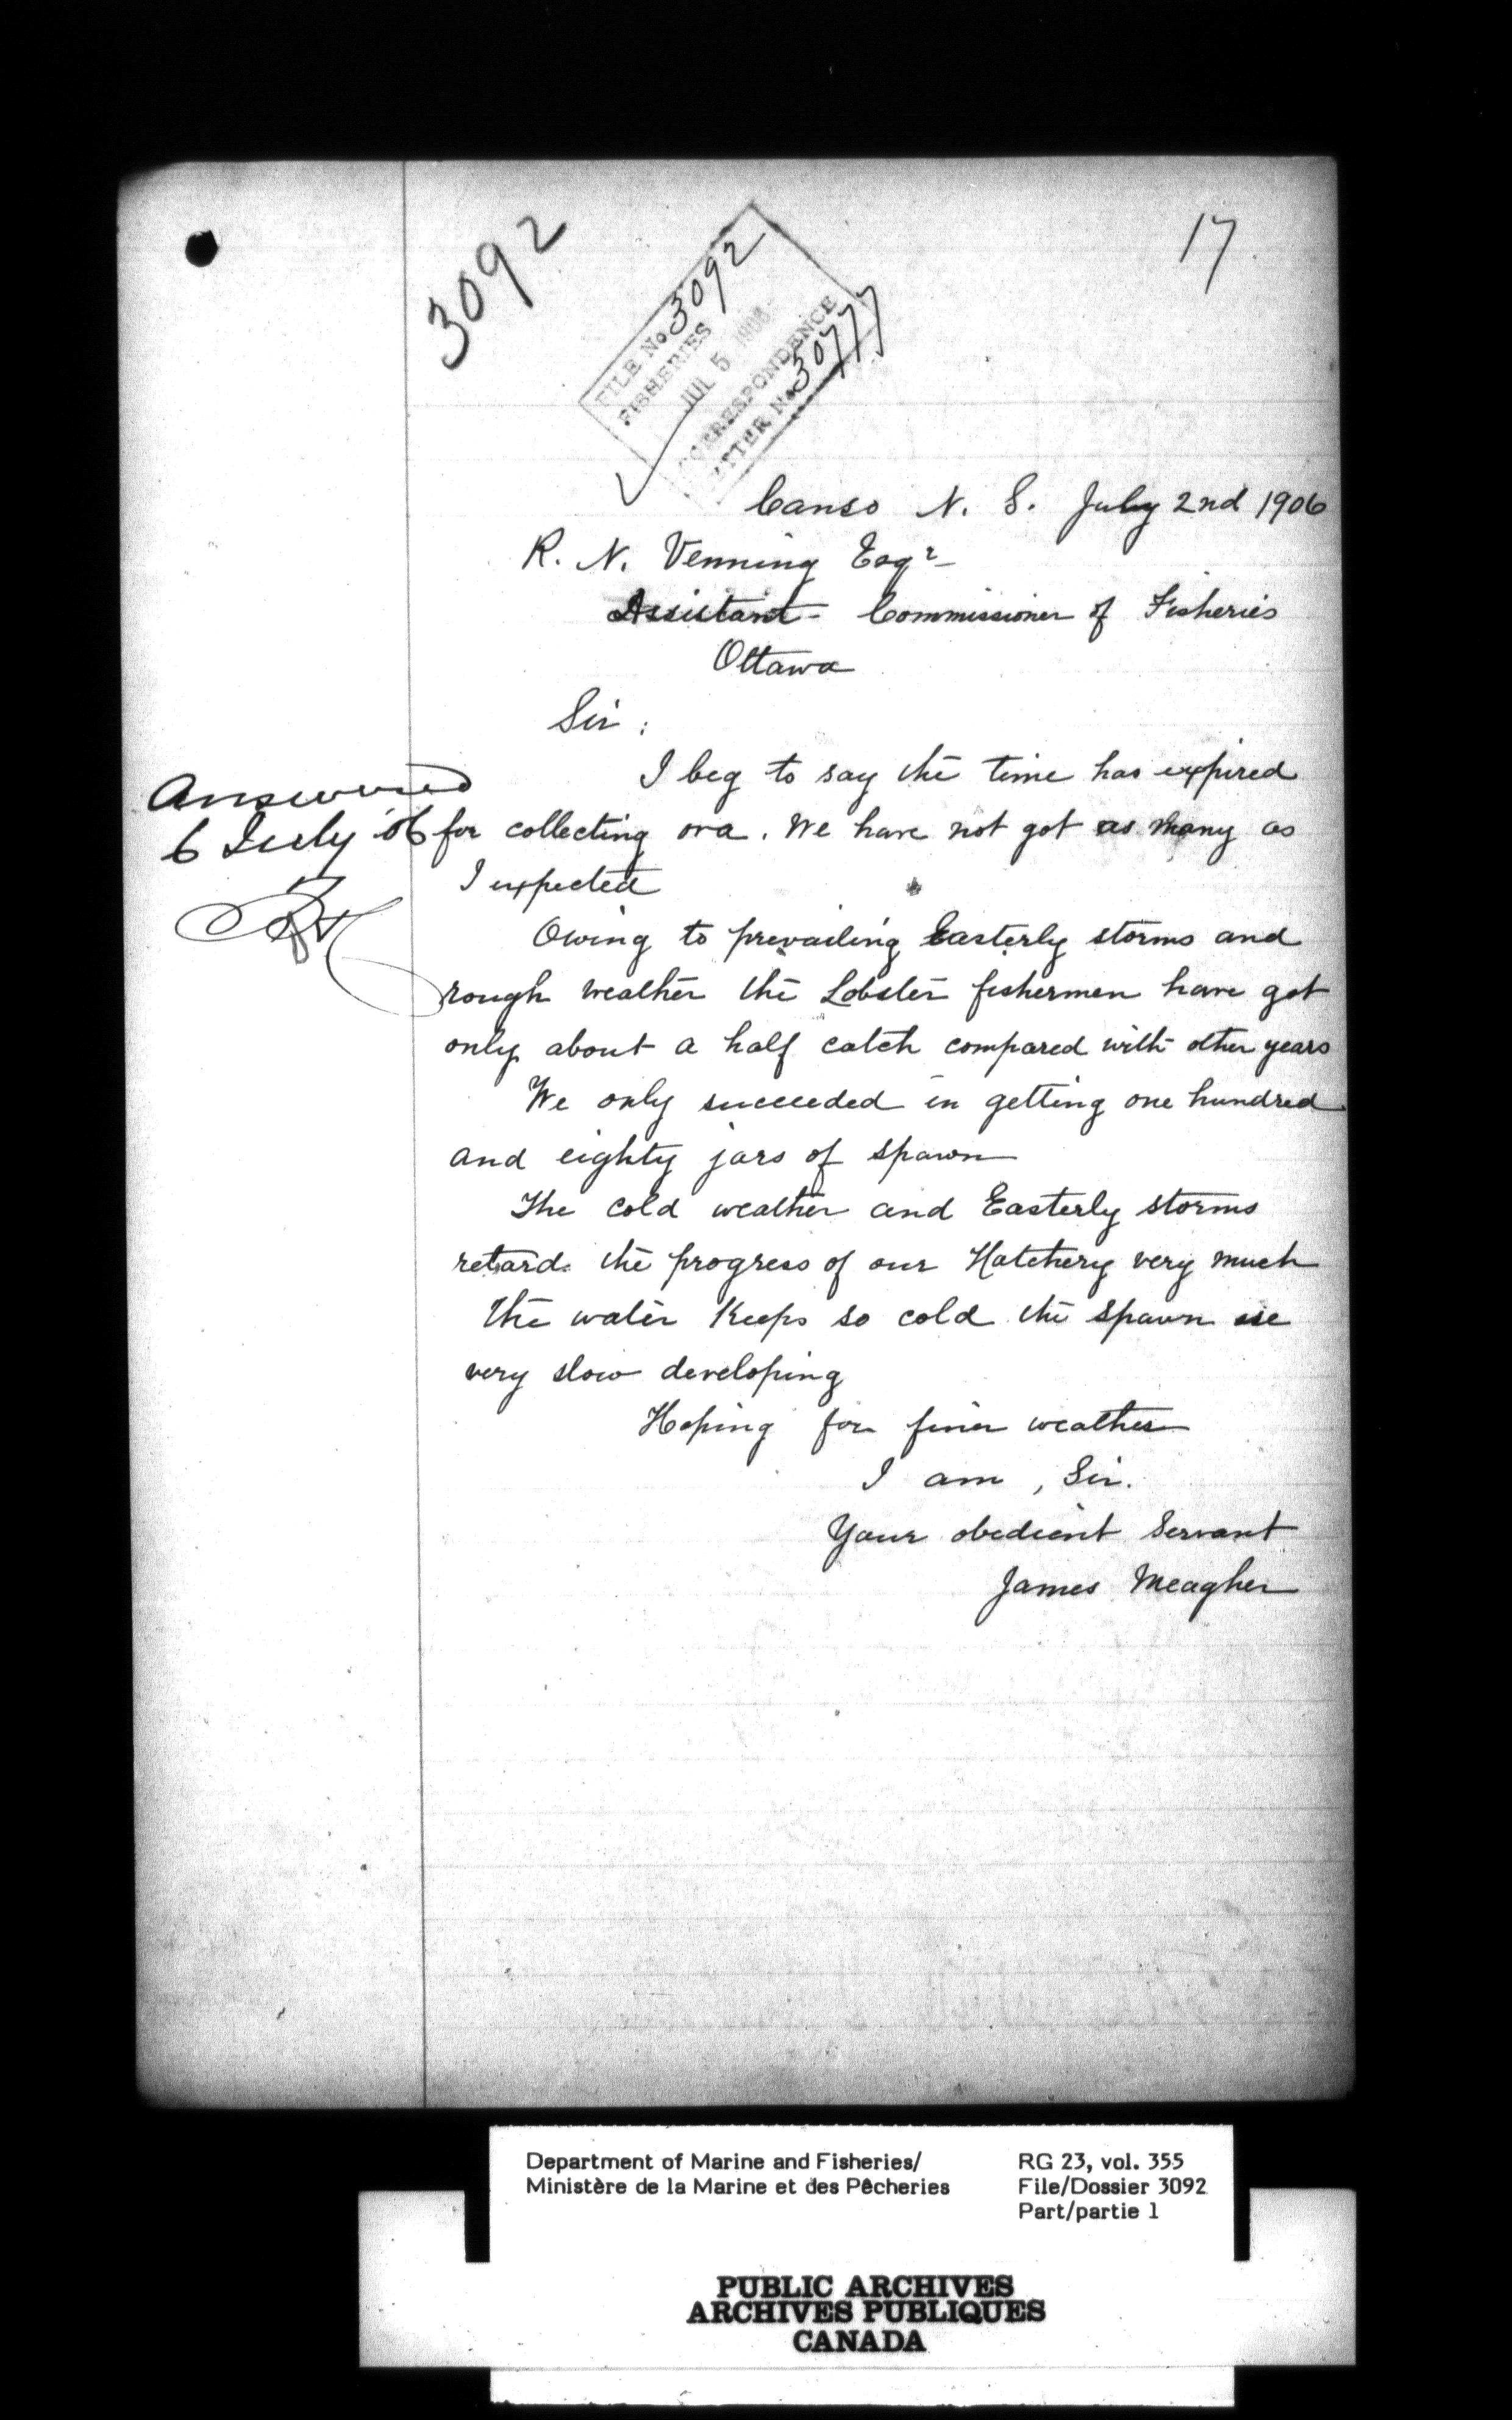 3092
17
FILE No. 3092
FISHERIES
JUL 5 1906
CORRESPONDENCE
LETTER No. 30777
Canso N. S. July 2nd 1906
R. N. Venning Esqr
Assistant Commissioner of Fisheries
Ottawa
Sir :
I beg to say the time has expired
for collecting ova. We have not got as many as
I expected
Answered
6 July 06
Owing to prevailing Easterly storms and
rough weather the Lobster fishermen have got
only about a half catch compared with other years
We only succeeded in getting one hundred
and eighty jars of spawn
The cold weather and Easterly storms
retard the progress of our Hatchery very much
The water keeps so cold the spawn is
very slow developing
Hoping for finer weather
I am , Sir.
Your obedient Servant
James Meagher
Department of Marine and Fisheries/
Ministère de la Marine et des Pêcheries
RG 23, vol. 355
File/Dossier 3092
Part/partie 1
PUBLIC ARCHIVES
ARCHIVES PUBLIQUES
CANADA